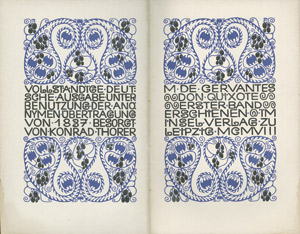 VOLLSTÄNDIGE DEUT-
SCHE AUSGABE UNTER
BENUTZUNG DER ANO-
NYMEN ÜBERTRAGUNG
VON 1837 BESORGT
VON KONRAD THORER
M. DE CERVANTES
DON QUIXOTE
ERSTER BAND
ERSCHIENEN IM
INSELVERLAG ZU
LEIPZIG MCMVIII